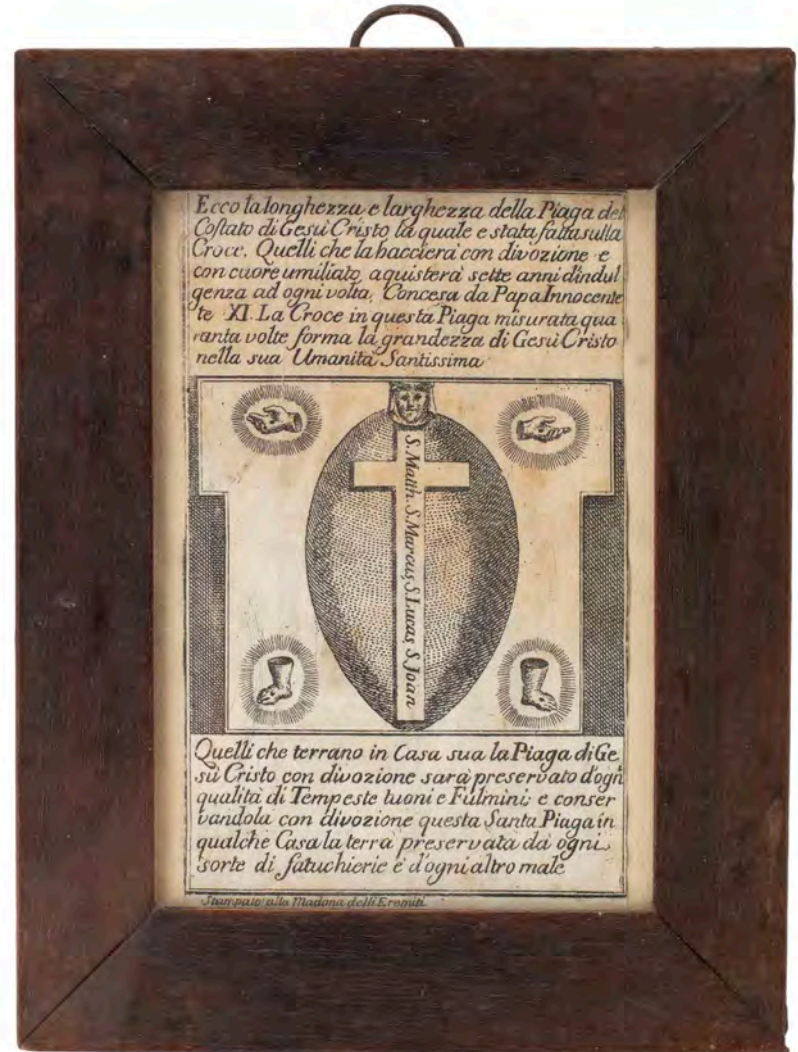 Ecco la longhezza e larghezza della Piaga del
Costato di Gesù Cristo la quale e stata fatta sulla
Croce. Quelli che la bacciera con divozione e
con cuore umiliato, aquisterà sette anni dindul
genza ad ogni volta, Concesa da Papa Innocente
te XI. La Croce in questa Piaga misurata qua
ranta volte forma la grandezza di Gesù Cristo
nella sua Umanità Santissima
S. Matth. S. Marcus, S. Lucas, S. Joan
Quelli che terrano in Casa sua la Piaga di Ge
sù Cristo con divozione sarà preservato d'ogni
qualità di Tempeste tuoni e Fulmini; e conser
vandola con divozione questa Santa Piaga in
qualche Casa la terrà preservata da ogni
sorte di fatuchierie e d'ogni altro male
Stampato alla Madona delli Eremiti